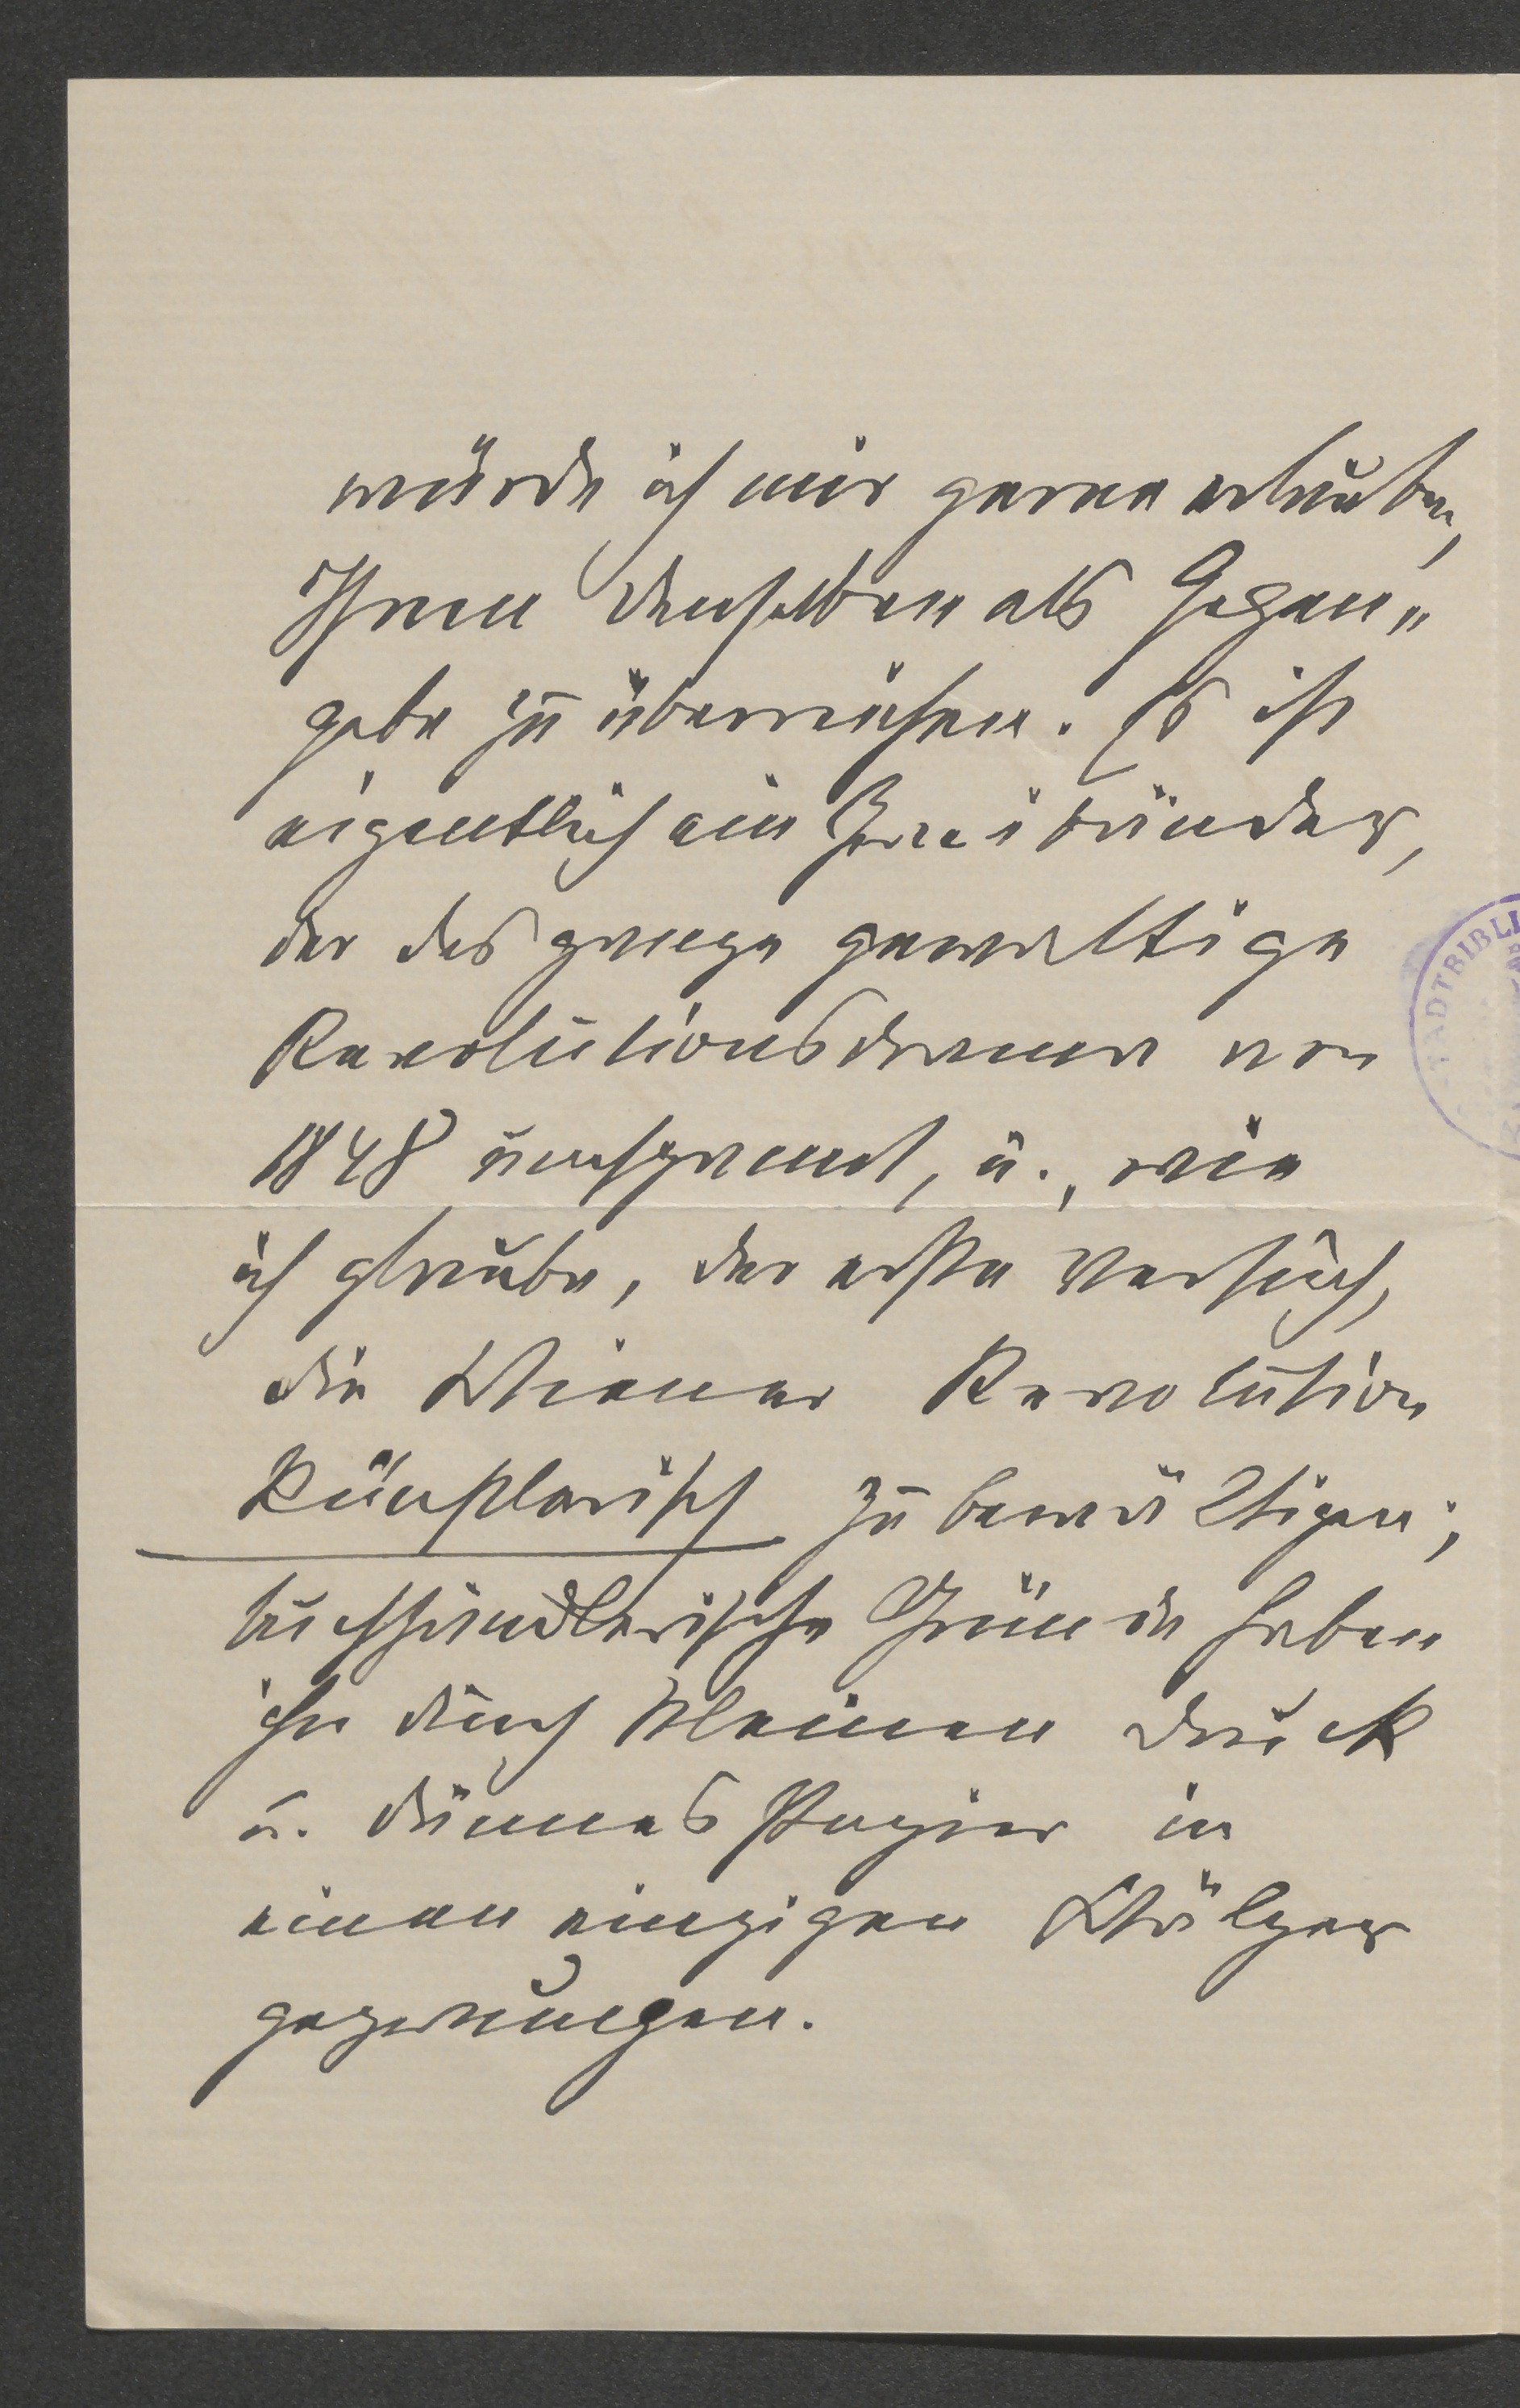 würde ich mir gerne erlauben,
Ihnen denselben als Gegen„
gabe zu überreichen. Es ist
eigentlich ein Zweibänder,
der das ganze gewaltige
Revolutionsdrama von
1848 umspannt, u., wie
ich glaube, der erste Versuch,
die Wiener Revolution
künstlerisch zu bewältigen;
buchhändlerische Gründe haben
ihn durch kleinen Druck
u. dünnes Papier in
einen einzigen Wälzer
gezwungen.